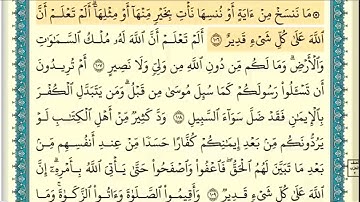 ۞ مَا نَنسَخْ مِنْ ءَايَةٍ أَوْ نُنسِهَا نَأْتِ بِخَيْرٍ مِّنْهَآ أَوْ مِثْلِهَآ ۗ أَلَمْ تَعْلَمْ أَنَّ
ٱللَّهَ عَلَىٰ كُلِّ شَىْءٍ قَدِيرٌ ١٠٦ أَلَمْ تَعْلَمْ أَنَّ ٱللَّهَ لَهُۥ مُلْكُ ٱلسَّمَٰوَٰتِ
وَٱلْأَرْضِ ۗ وَمَا لَكُم مِّن دُونِ ٱللَّهِ مِن وَلِىٍّ وَلَا نَصِيرٍ ١٠٧ أَمْ تُرِيدُونَ
أَن تَسْـَٔلُوا۟ رَسُولَكُمْ كَمَا سُئِلَ مُوسَىٰ مِن قَبْلُ ۗ وَمَن يَتَبَدَّلِ ٱلْكُفْرَ
بِٱلْإِيمَٰنِ فَقَدْ ضَلَّ سَوَآءَ ٱلسَّبِيلِ ١٠٨ وَدَّ كَثِيرٌ مِّنْ أَهْلِ ٱلْكِتَٰبِ لَوْ
يَرُدُّونَكُم مِّنۢ بَعْدِ إِيمَٰنِكُمْ كُفَّارًا حَسَدًا مِّنْ عِندِ أَنفُسِهِم مِّنۢ
بَعْدِ مَا تَبَيَّنَ لَهُمُ ٱلْحَقُّ ۖ فَٱعْفُوا۟ وَٱصْفَحُوا۟ حَتَّىٰ يَأْتِىَ ٱللَّهُ بِأَمْرِهِۦٓ ۗ إِنَّ
ٱللَّهَ عَلَىٰ كُلِّ شَىْءٍ قَدِيرٌ ١٠٩ وَأَقِيمُوا۟ ٱلصَّلَوٰةَ وَءَاتُوا۟ ٱلزَّكَوٰةَ ۚ وَمَا